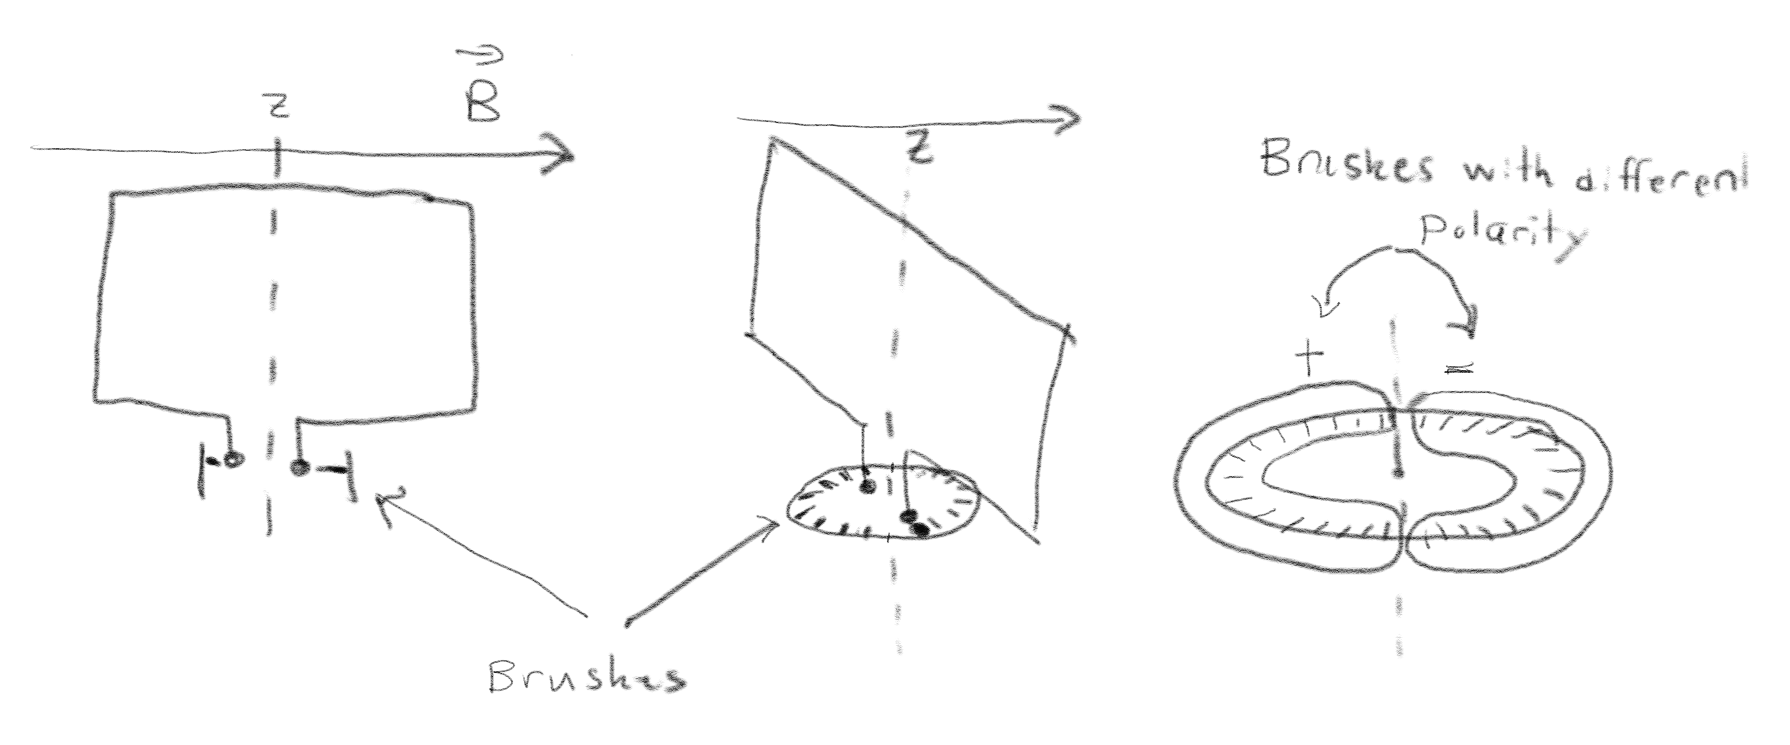 B
z
z
Brushes with different
polarity
+
=
Brushes